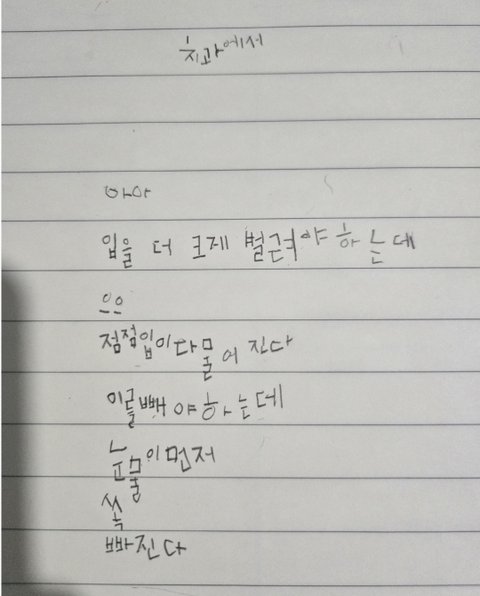 치과에서
아아
입을 더 크게 벌려야 하는데
으으
점점입이다물어 진다
이를빼야하는데
눈물이먼저
쏙
빠진다